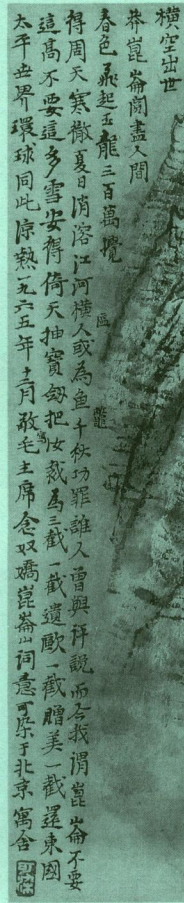 橫空出世
莽崑崙閱盡人間
春色飛起玉龍三百萬攪
得周天寒徹夏日消溶江河橫人或為鱼千秋功罪誰人曾與評說而今我謂崑崙不要
這高不要這多雪安得倚天抽寶劔把汝裁為三截一截遺歐一截贈美一截還東國
太平世界環球同此涼熱一九六五年十二月敬寫毛主席念奴嬌崑崙山词意可染于北京寓舍